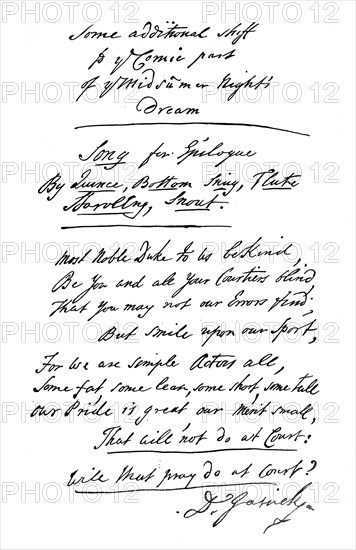 Some additional stuff
p ye Comic part
of ye Midsumer Night's
Dream
Song for Epilogue
By Quince, Bottom Snug, Flute
Starvling, Snout.
Most Noble Duke to us be kind,
Be You and all Your Courtiers blind,
That You may not our Errors find,
But smile upon our Sport,
For we are simple Actors all,
Some fat some lean, some short some tall
Our Pride is great our Merit small,
That will not do at Court.
Will that pray do at Court?
D. Garrick